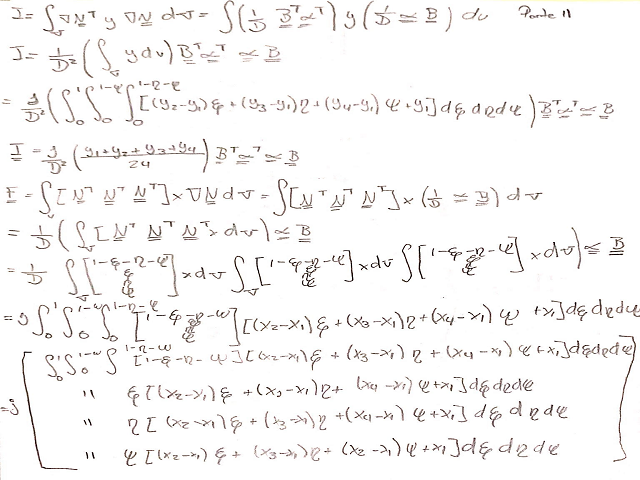 I = ∫ᵥ ∇N̲ᵀ y ∇N̲ dv = ∫(1/D B̲ᵀα̲ᵀ) y (1/D α̲ B̲) dv Parte 11
I = 1/D² (∫ᵥ y dv) B̲ᵀα̲ᵀ α̲ B̲
= J/D² (∫₀¹∫₀^1-ψ∫₀^1-η-ψ [(y₂-y₁)ξ + (y₃-y₁)η + (y₄-y₁)ψ + y₁] dξ dη dψ) B̲ᵀα̲ᵀ α̲ B̲
I̲ = J/D² (y₁+y₂+y₃+y₄/24) B̲ᵀ α̲ᵀ α̲ B̲
F̲ = ∫ᵥ [N̲ᵀ N̲ᵀ N̲ᵀ] x ∇N̲ dv = ∫[N̲ᵀ N̲ᵀ N̲ᵀ] x (1/D α̲ B̲) dv
= 1/D (∫ᵥ [N̲ᵀ N̲ᵀ N̲ᵀ x dv) α̲ B̲
= 1/D ∫ᵥ [1-ξ-η-ψ ξ η ψ] x dv ∫ᵥ [1-ξ-η-ψ ξ η ψ] x dv ∫ [1-ξ-η-ψ ξ η ψ] x dv) α̲ B̲
= J ∫₀¹∫₀^1-ψ∫₀^1-η-ψ [1-ξ-η-ψ ξ η ψ] [(x₂-x₁)ξ + (x₃-x₁)η + (x₄-x₁)ψ + x₁] dξ dη dψ
∫₀¹∫₀^1-ψ∫₀^1-η-ψ [1-ξ-η-ψ] [(x₂-x₁)ξ + (x₃-x₁)η + (x₄-x₁)ψ + x₁] dξ dη dψ
= J " ξ [(x₂-x₁)ξ + (x₃-x₁)η + (x₄-x₁)ψ + x₁] dξ dη dψ
" η [(x₂-x₁)ξ + (x₃-x₁)η + (x₄-x₁)ψ + x₁] dξ dη dψ
" ψ [(x₂-x₁)ξ + (x₃-x₁)η + (x₂-x₁)ψ + x₁] dξ dη dψ